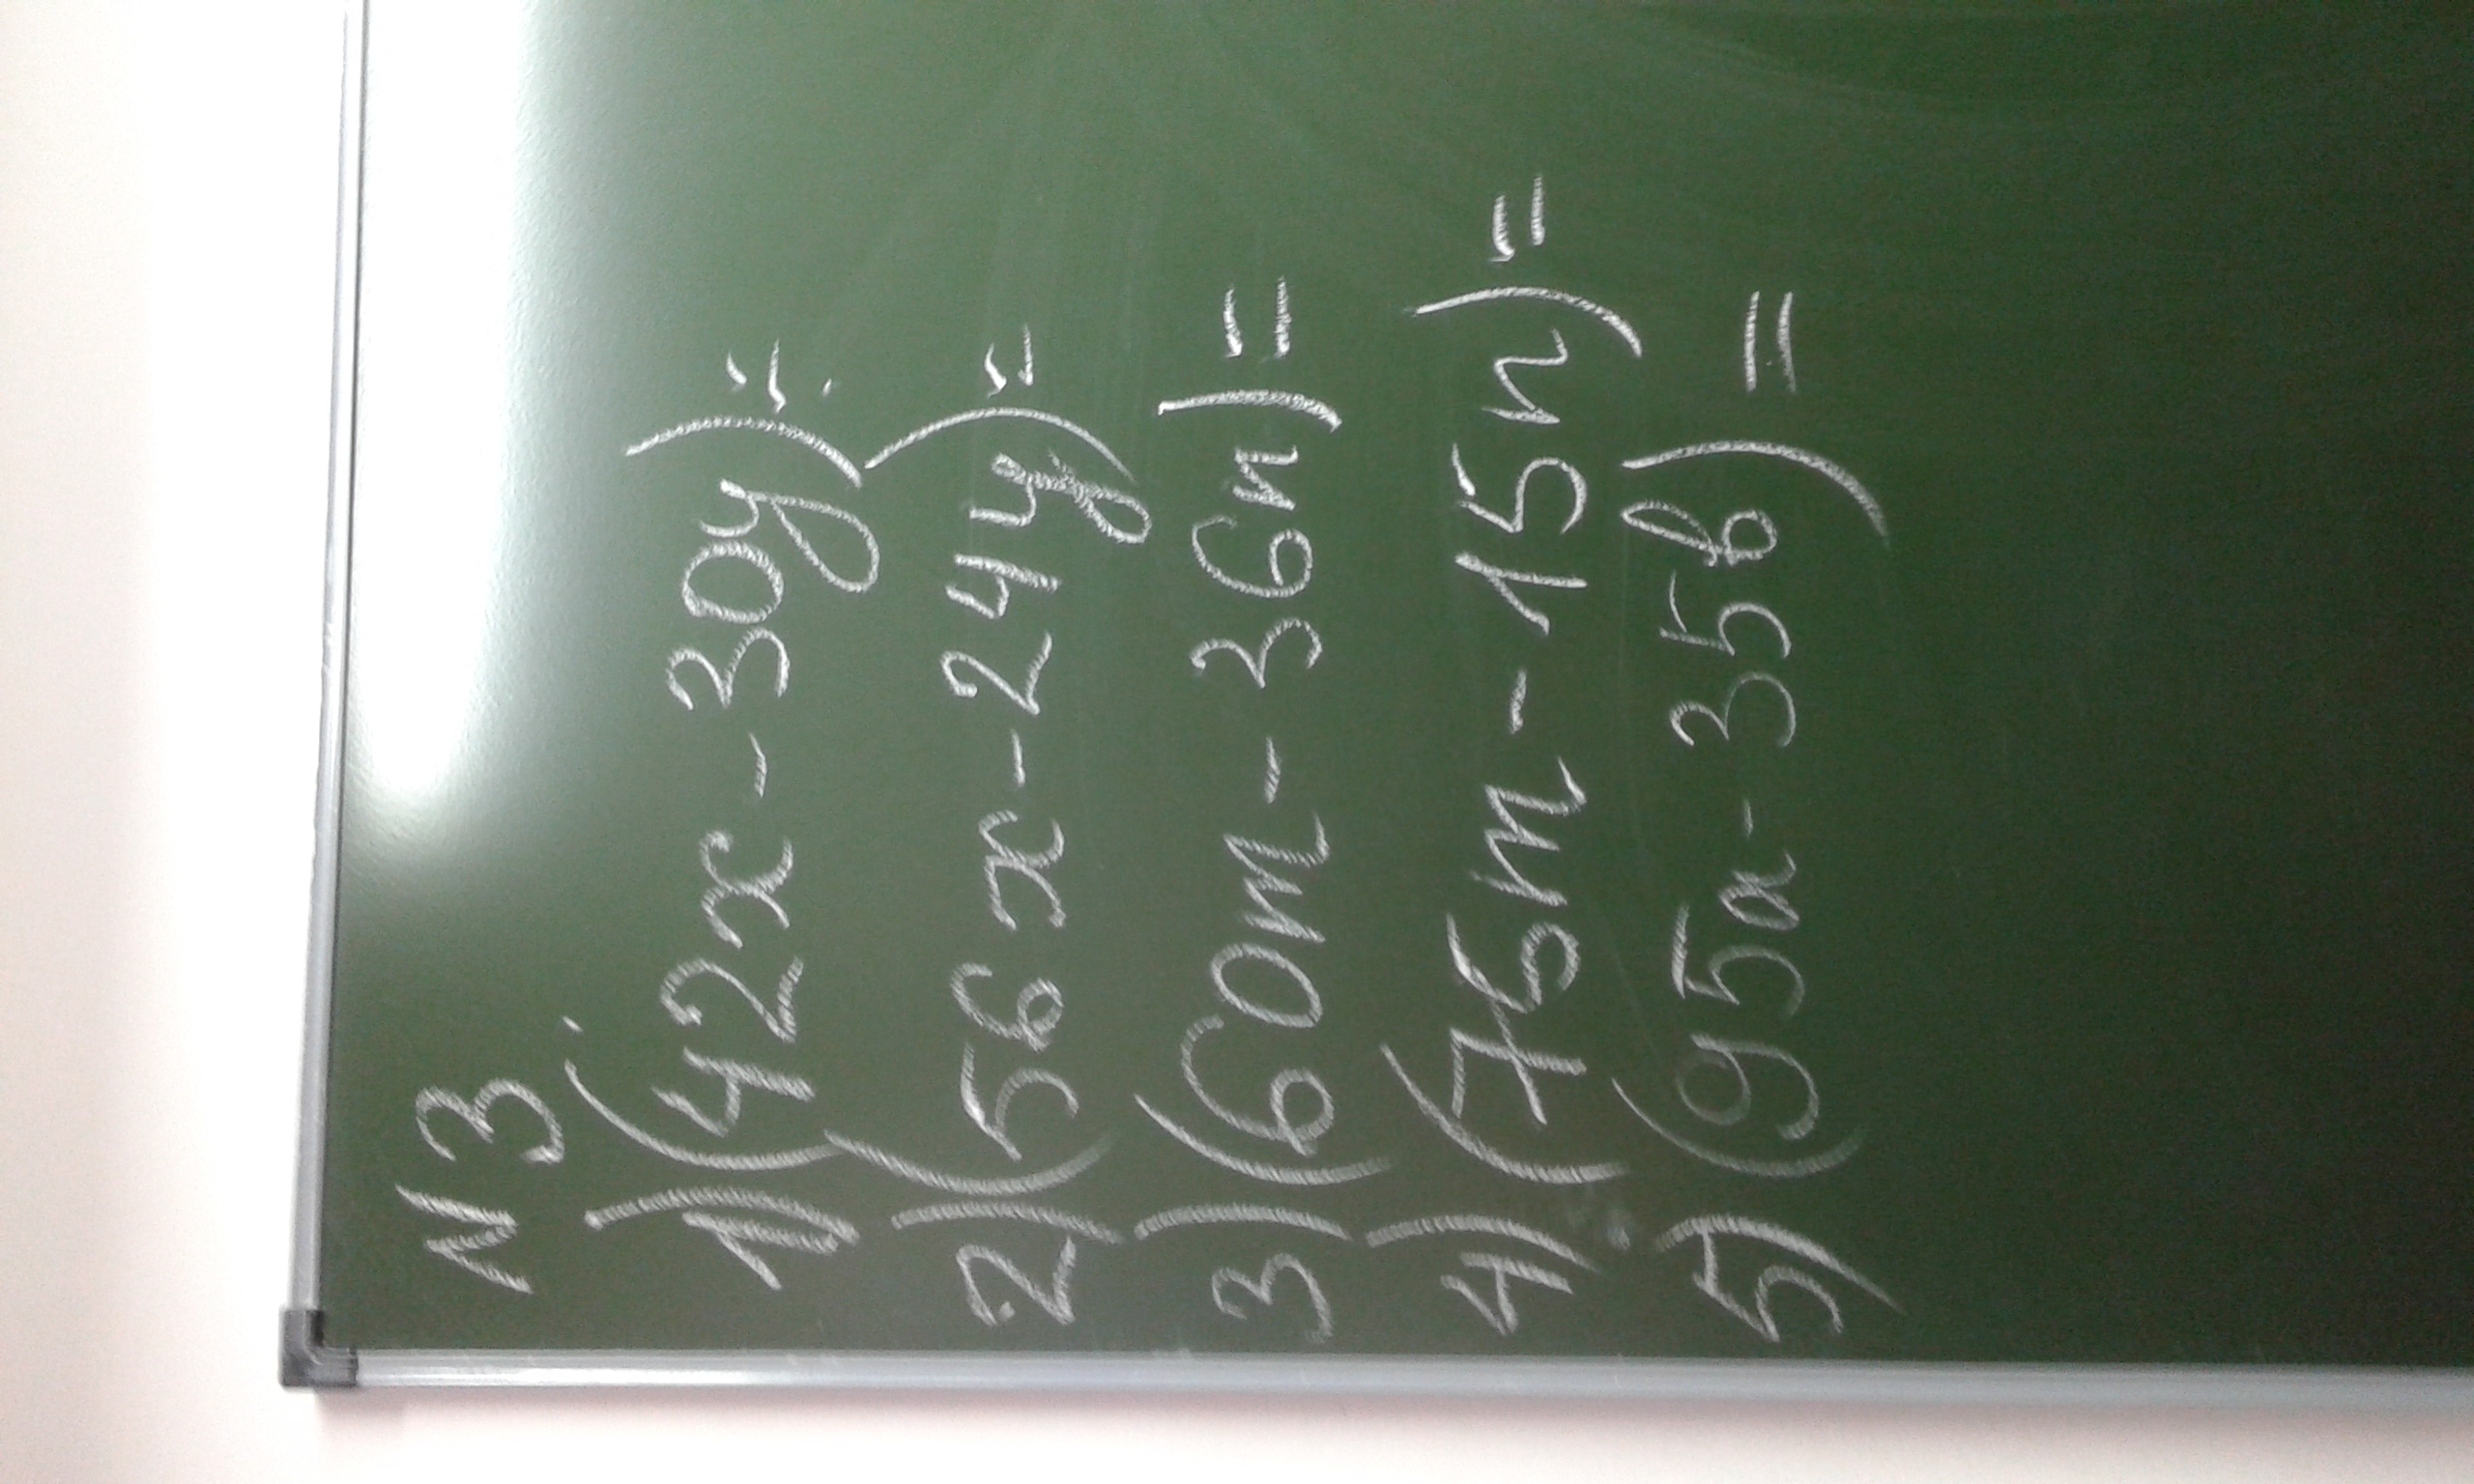 N 3
1) (42x - 30y) =
2) (56x - 24y) =
3) (60m - 36n) =
4) (75m - 15n) =
5) (95a - 35b) =